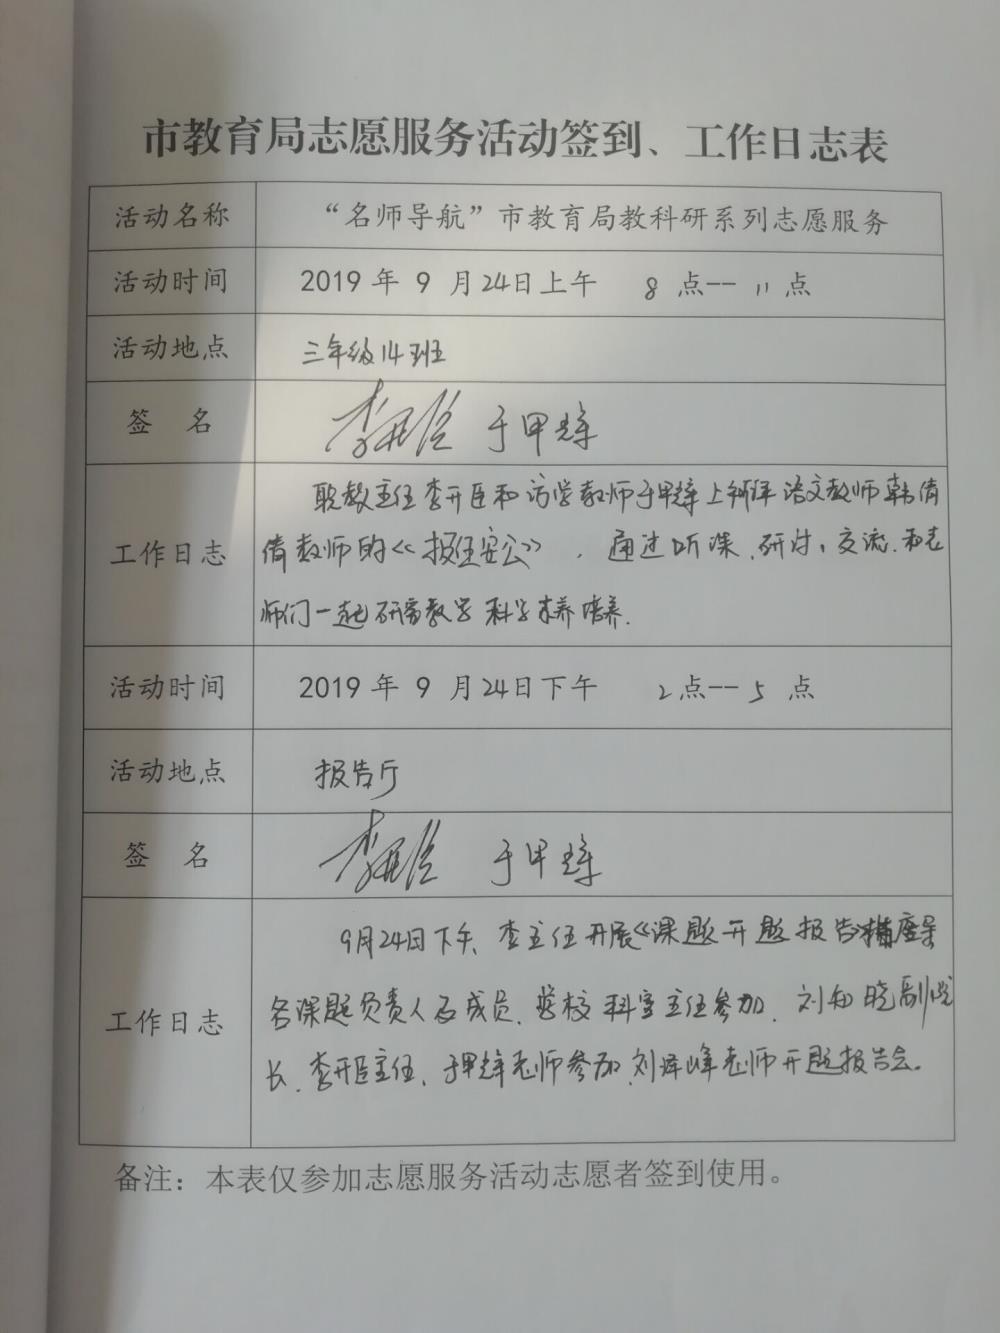 市教育局志愿服务活动签到、工作日志表
活动名称 “名师导航”市教育局教科研系列志愿服务
活动时间 2019年 9 月24日上午 8 点-- 11 点
活动地点 三年级14班
签 名 李开臣 于甲辉
职教主任李开臣和访学教师于甲辉上 语文教师韩倩
工作日志 倩教师的《 》,通过听课、研讨、交流、和老
师们一起研究教学科学素养培养.
活动时间 2019年 9 月24日下午 2点-- 5 点
活动地点 报告厅
签 名 李开臣 于甲辉
9月24日下午、李主任开展《课题开题报告
工作日志 各课题负责人及成员、学校科室主任参加、刘知晓副院
长、李开臣主任、于甲辉老师参加、刘泽峰老师开题报告会。
备注：本表仅参加志愿服务活动志愿者签到使用。